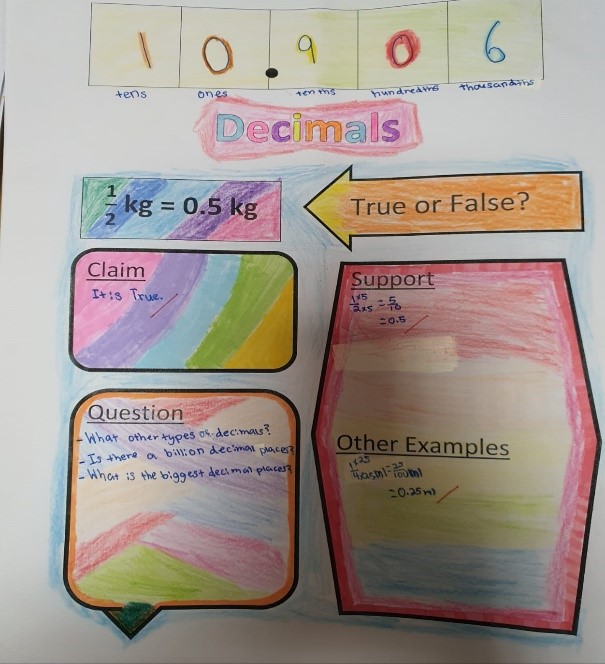 1 0 . 9 0 6
tens ones tenths hundredths thousandths
Decimals
1/2 kg = 0.5 kg
True or False?
Claim
It is True.
Support
1×5/2×5 = 5/10
= 0.5
Question
- What other types of decimals?
- Is there a billion decimal places?
- What is the biggest decimal places?
Other Examples
1×25/4×25 ml = 25/100 ml
= 0.25 ml